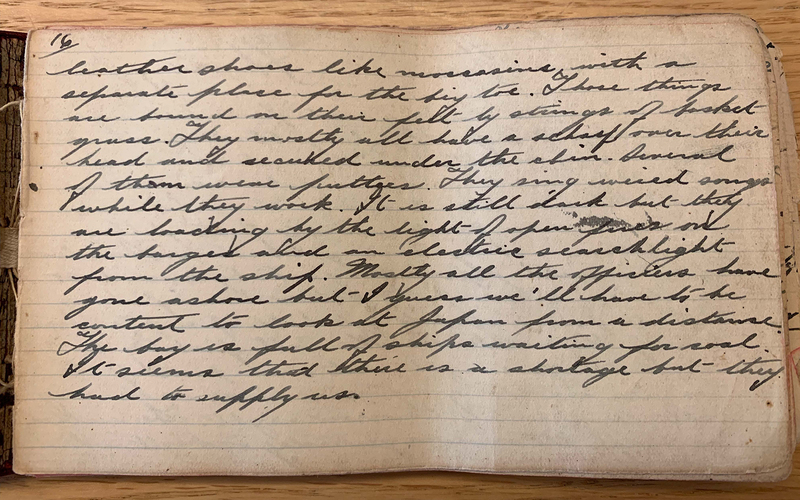 16
leather shoes like moccasins, with a
separate place for the big toe. Those things
are bound on their feet by strings of basket
grass. They mostly all have a scarf over their
head and secured under the chin. Several
of them wear puttees. They sing weird songs
while they work. It is still dark but they
are loading by the light of open fires on
the barges and an electric searchlight
from the ship. Mostly all the officers have
gone ashore but I guess we'll have to be
content to look at Japan from a distance.
The bay is full of ships waiting for coal.
It seems that there is a shortage but they
had to supply us.